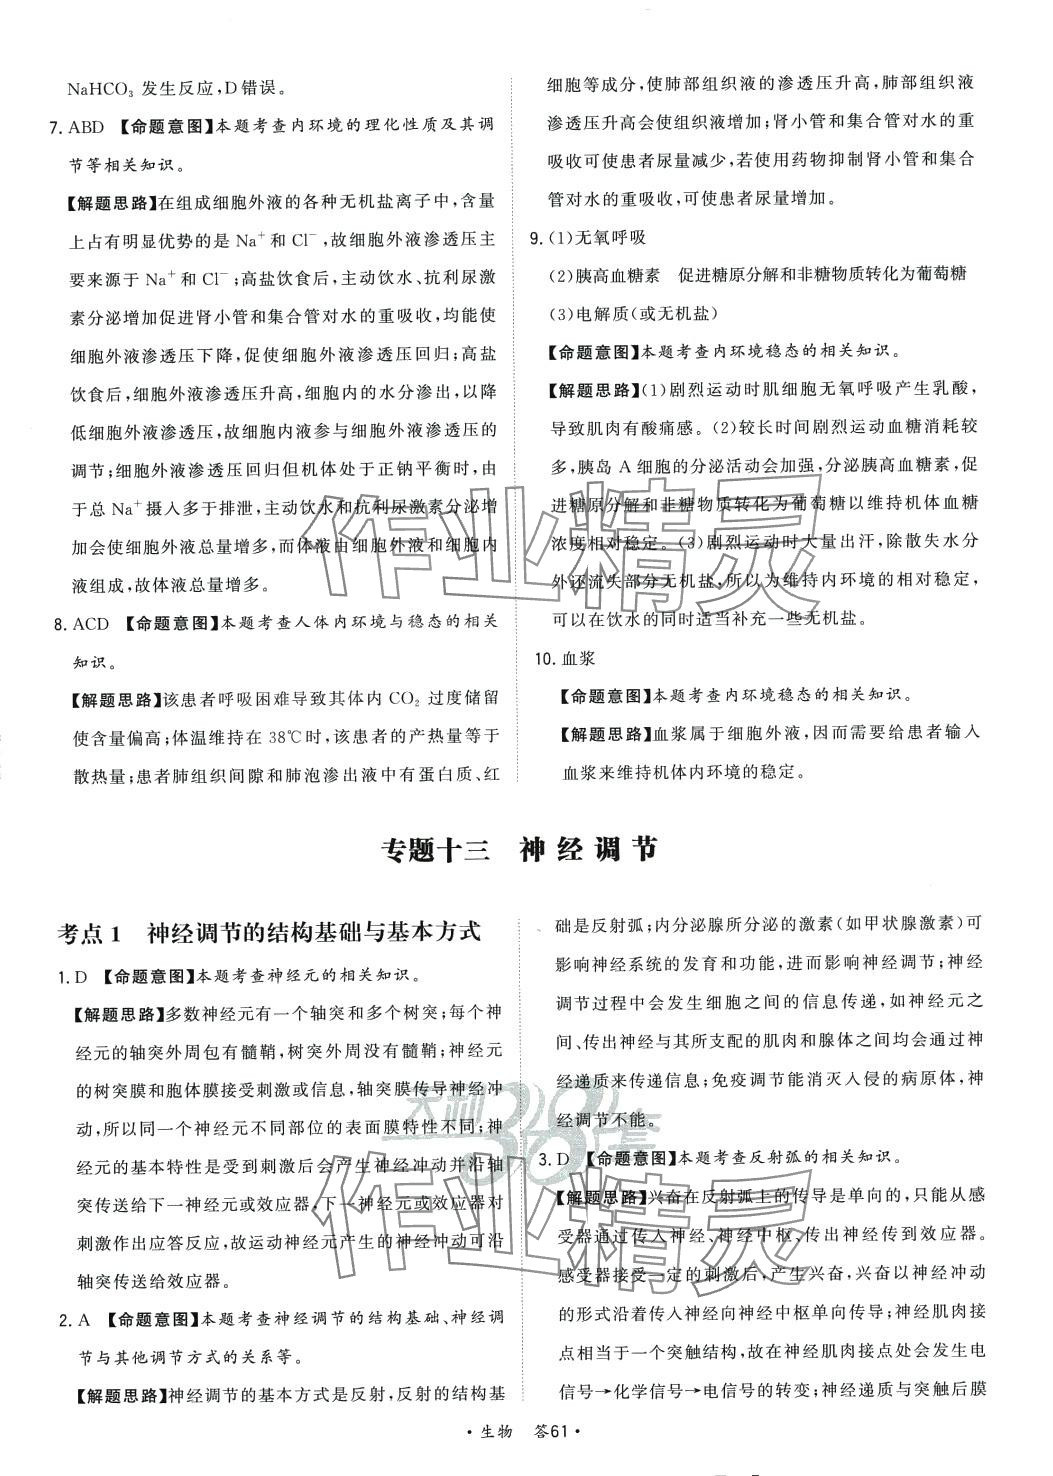 NaHCO₃ 发生反应,D错误。
7. ABD 【命题意图】本题考查内环境的理化性质及其调
节等相关知识。
【解题思路】在组成细胞外液的各种无机盐离子中,含量
上占有明显优势的是 Na⁺ 和 Cl⁻,故细胞外液渗透压主
要来源于 Na⁺ 和 Cl⁻;高盐饮食后,主动饮水、抗利尿激
素分泌增加促进肾小管和集合管对水的重吸收,均能使
细胞外液渗透压下降,促使细胞外液渗透压回归;高盐
饮食后,细胞外液渗透压升高,细胞内的水分渗出,以降
低细胞外液渗透压,故细胞内液参与细胞外液渗透压的
调节;细胞外液渗透压回归但机体处于正钠平衡时,由
于总 Na⁺ 摄入多于排泄,主动饮水和抗利尿激素分泌增
加会使细胞外液总量增多,而体液由细胞外液和细胞内
液组成,故体液总量增多。
8. ACD 【命题意图】本题考查人体内环境与稳态的相关
知识。
【解题思路】该患者呼吸困难导致其体内 CO₂ 过度储留
使含量偏高;体温维持在 38℃时,该患者的产热量等于
散热量;患者肺组织间隙和肺泡渗出液中有蛋白质、红
细胞等成分,使肺部组织液的渗透压升高,肺部组织液
渗透压升高会使组织液增加;肾小管和集合管对水的重
吸收可使患者尿量减少,若使用药物抑制肾小管和集合
管对水的重吸收,可使患者尿量增加。
9. (1)无氧呼吸
(2)胰高血糖素 促进糖原分解和非糖物质转化为葡萄糖
(3)电解质(或无机盐)
【命题意图】本题考查内环境稳态的相关知识。
【解题思路】(1)剧烈运动时肌细胞无氧呼吸产生乳酸,
导致肌肉有酸痛感。(2)较长时间剧烈运动血糖消耗较
多,胰岛 A 细胞的分泌活动会加强,分泌胰高血糖素,促
进糖原分解和非糖物质转化为葡萄糖以维持机体血糖
浓度相对稳定。(3)剧烈运动时大量出汗,除散失水分
外还流失部分无机盐,所以为维持内环境的相对稳定,
可以在饮水的同时适当补充一些无机盐。
10. 血浆
【命题意图】本题考查内环境稳态的相关知识。
【解题思路】血浆属于细胞外液,因而需要给患者输入
血浆来维持机体内环境的稳定。
作业精灵
专题十三 神经调节
考点 1 神经调节的结构基础与基本方式
1. D 【命题意图】本题考查神经元的相关知识。
【解题思路】多数神经元有一个轴突和多个树突;每个神
经元的轴突外周包有髓鞘,树突外周没有髓鞘;神经元
的树突膜和胞体膜接受刺激或信息,轴突膜传导神经冲
动,所以同一个神经元不同部位的表面膜特性不同;神
经元的基本特性是受到刺激后会产生神经冲动并沿轴
突传送给下一神经元或效应器,下一神经元或效应器对
刺激作出应答反应,故运动神经元产生的神经冲动可沿
轴突传送给效应器。
2. A 【命题意图】本题考查神经调节的结构基础、神经调
节与其他调节方式的关系等。
【解题思路】神经调节的基本方式是反射,反射的结构基
础是反射弧;内分泌腺所分泌的激素(如甲状腺激素)可
影响神经系统的发育和功能,进而影响神经调节;神经
调节过程中会发生细胞之间的信息传递,如神经元之
间、传出神经与其所支配的肌肉和腺体之间均会通过神
经递质来传递信息;免疫调节能消灭入侵的病原体,神
经调节不能。
3. D 【命题意图】本题考查反射弧的相关知识。
【解题思路】兴奋在反射弧上的传导是单向的,只能从感
受器通过传入神经、神经中枢、传出神经传到效应器。
感受器接受一定的刺激后,产生兴奋,兴奋以神经冲动
的形式沿着传入神经向神经中枢单向传导;神经肌肉接
点相当于一个突触结构,故在神经肌肉接点处会发生电
信号→化学信号→电信号的转变;神经递质与突触后膜
天利38套
作业精灵
·生物 答61·